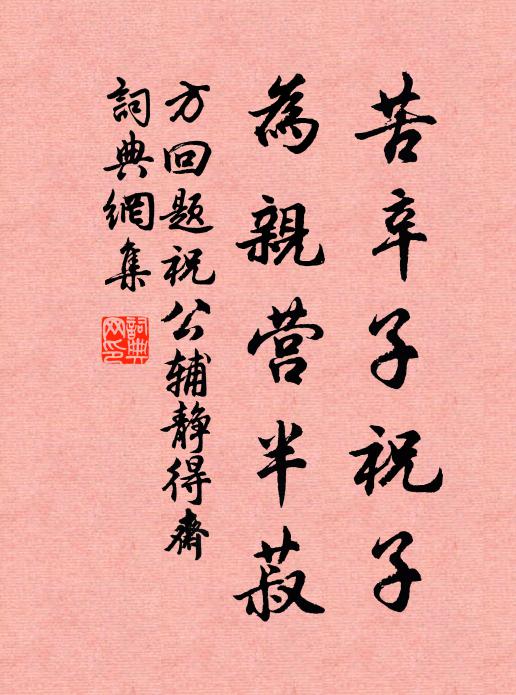 苦辛子祝子
為親營半菽
方回題祝公辅静得齋
詞典網集
詞典網印